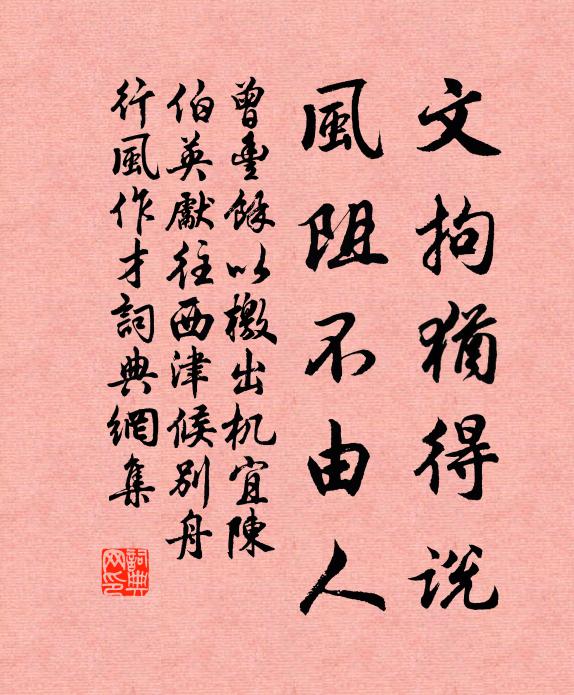 文拘猶得説
風阻不由人
曾豐餘以檄出机宜陳
伯英獻往西津候別舟
行風作才詞典網集
詞典
网印